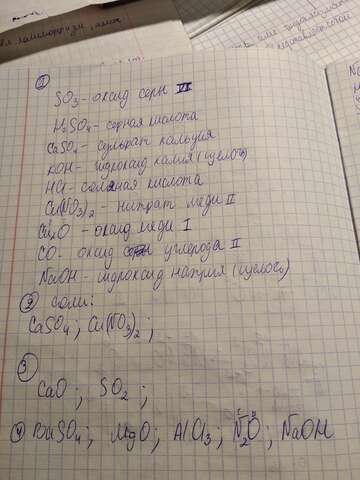 ①
SO₃ - оксид серы VI
H₂SO₄ - серная кислота
CaSO₄ - сульфат кальция
KOH - гидроксид калия (щелочь)
HCl - соляная кислота
Cu(NO₃)₂ - нитрат меди II
Cu₂O - оксид меди I
CO - оксид углерода II
NaOH - гидроксид натрия (щелочь)
② соли:
CaSO₄; Cu(NO₃)₂;
③
CaO; SO₂;
④ BaSO₄; MgO; AlCl₃; N₂O; NaOH